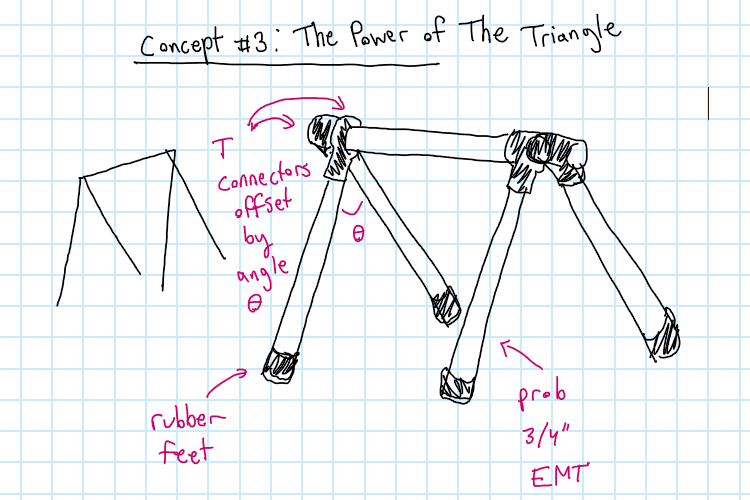 Concept #3: The Power of The Triangle
T
connectors
offset
by
angle
θ
θ
rubber
feet
prob
3/4"
EMT